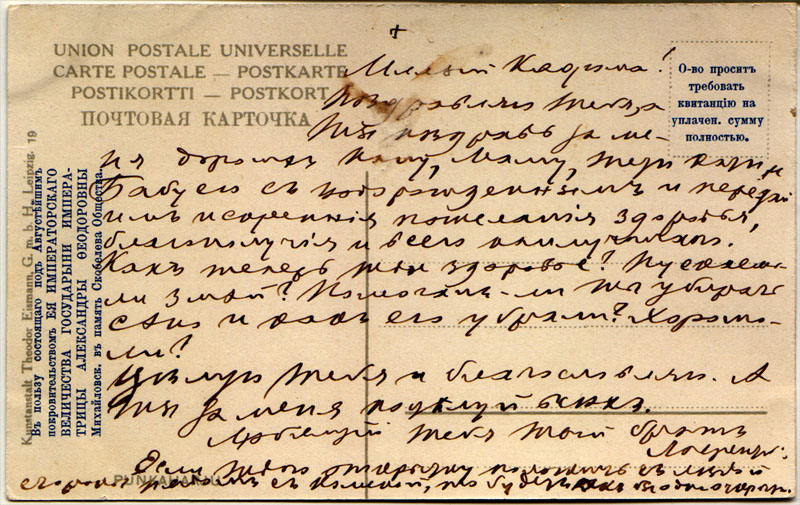 UNION POSTALE UNIVERSELLE
CARTE POSTALE — POSTKARTE
POSTIKORTTI — POSTKORT
ПОЧТОВАЯ КАРТОЧКА
О-во проситъ
требовать
квитанцію на
уплачен. сумму
полностью.
Kunstanstalt Theodor Eismann, G. m. b. H. Leipzig. 19
Въ пользу состоящаго подъ Августѣйшимъ
покровительствомъ ЕЯ ИМПЕРАТОРСКАГО
ВЕЛИЧЕСТВА ГОСУДАРЫНИ ИМПЕРА-
ТРИЦЫ АЛЕКСАНДРЫ ѲЕОДОРОВНЫ
Михайловск. въ память Скобелева Общества.
Милый
Поздравляю тебя, а
ты поздравь за ме-
ня дорогихъ Папу, Маму, тетю
Бабусю съ новорожденнымъ и передай
имъ искреннія пожеланія здоровья,
благополучія и всего наилучшаго.
Какъ теперь твое здоровье? Пускаешь-
ли змѣй? Помогалъ-ли ты убирать
сѣно и какъ его убрали? Хорошо-
ли?
Цѣлую тебя и благословляю. А
ты за меня поцѣлуй всѣхъ.
Любящій тебя твой братъ
Если твою открытку положить съ
стороны рядомъ съ то будетъ
PUNKAHARJU